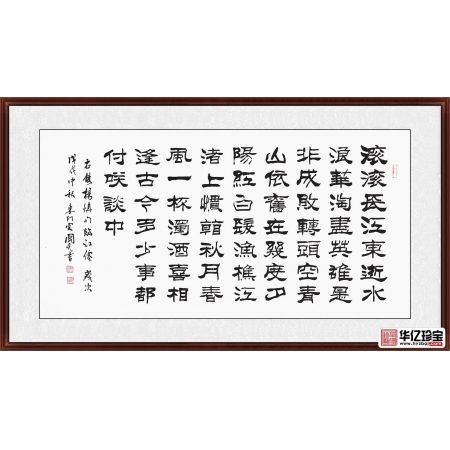 滚滚長江東逝水
浪華淘盡英雄是
非成敗轉頭空青
山依舊在幾度夕
陽紅白髮漁樵江
渚上慣看秋月春
風一杯濁酒喜相
逢古今多少事都
付咲談中
右錄楊慎詞臨江仙 歲次
戊戌仲秋 書
华亿珍宝